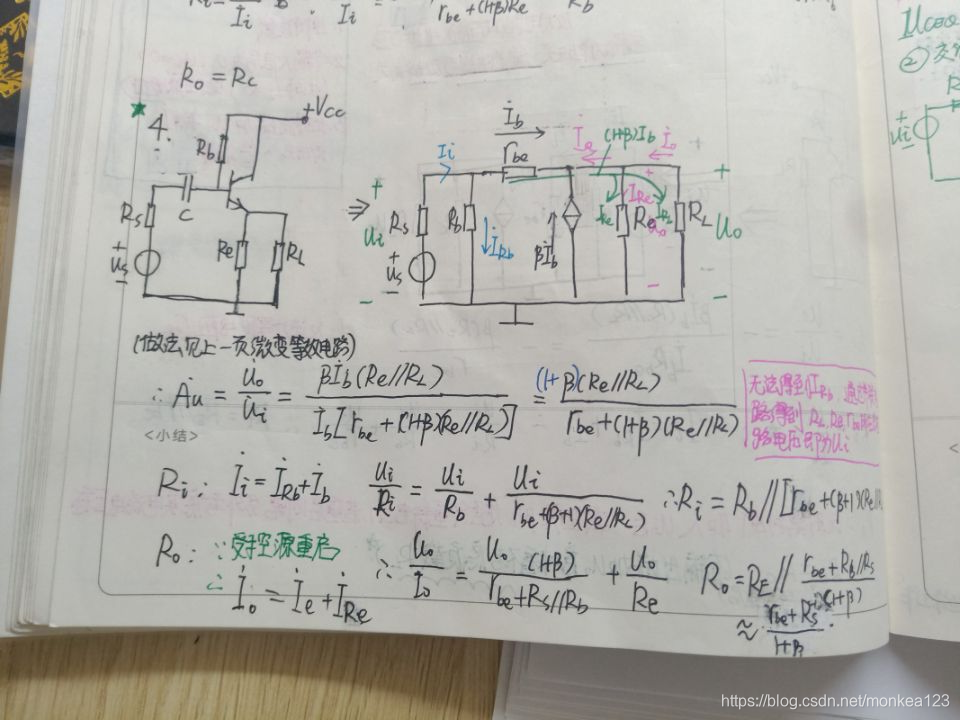 Ro = Rc
4.
+Vcc
Rb
C
Rs
+
u̇s
−
Re
RL
⇒
İb
rbe
İi
İe
(1+β)İb
İo
+
Ui
−
Rs
Rb
İRb
βİb
İRe
Re
RL
+
Uo
−
+
u̇s
−
(做法见上一页微变等效电路)
∴ Au = U̇o/U̇i = βİb(Re//RL) / İb[rbe+(1+β)(Re//RL)] = (1+β)(Re//RL) / rbe+(1+β)(Re//RL)
无法得到İRb, 通过
路得到 RL, Re, rbe
路电压即为Ui
<小结>
Ri: İi = İRb+İb Ui/Ri = Ui/Rb + Ui/rbe+(β+1)(Re//RL) ∴Ri = Rb//[rbe+(β+1)(Re//RL
Ro: ∵受控源重启
∴ İo = İe + İRe ∴ Uo/Io = Uo (1+β)/rbe+Rs//Rb + Uo/Re Ro = RE// rbe+Rb//Rs/(1+β)
≈ rbe+Rs/1+β
https://blog.csdn.net/monkea123